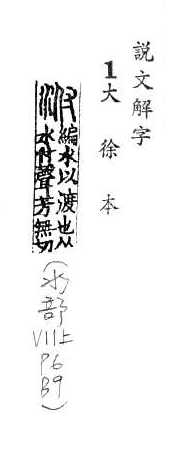 説文解字
1大徐本
泭編木以渡也从
水付聲芳無切
(水部
VII上
P6
B9)